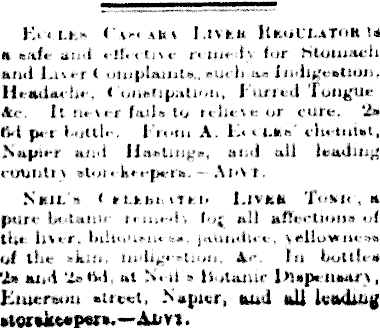 Eccles Cascara Liver Regulator is
a safe and effective remedy for Stomach
and Liver Complaints, such as Indigestion,
Headache, Constipation, Furred Tongue
&c. It never fails to relieve or cure. 2s
6d per bottle. From A. Eccles' chemist,
Napier and Hastings, and all leading
country storekeepers.—Advt.
Neil's Celebrated Liver Tonic, a
pure botanic remedy for all affections of
the liver, biliousness, jaundice, yellowness
of the skin, indigestion, &c. In bottles
2s and 2s 6d, at Neil's Botanic Dispensary,
Emerson street, Napier, and all leading
storekeepers.—Advt.